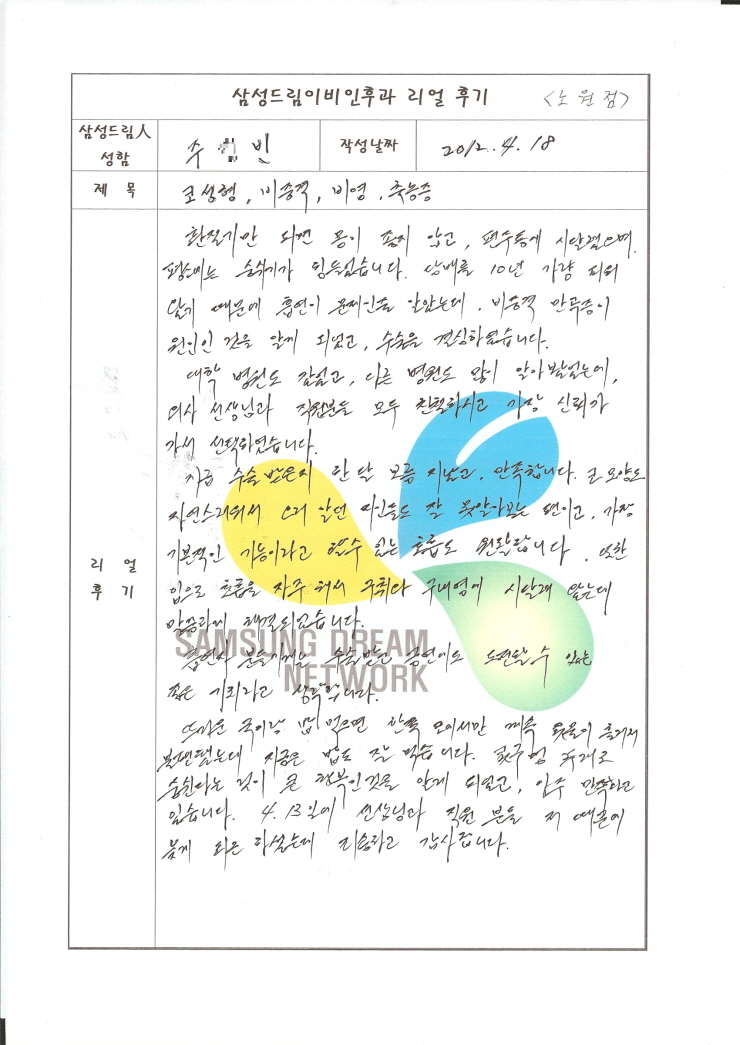 삼성드림이비인후과 리얼 후기 <노원점>
삼성드림人
성함
수 빈
작성날짜
2012. 4. 18
제 목
코성형, 비중격, 비염, 축농증
리 얼
후 기
환절기만 되면 몸이 좋지 않고, 편두통에 시달렸으며,
평소에는 숨쉬기가 힘들었습니다. 담배를 10년 가량 피워
왔기 때문에 흡연이 문제인줄 알았는데, 비중격 만곡증이
원인인 것을 알게 되었고, 수술을 결심하였습니다.
대학 병원도 갔었고, 다른 병원도 많이 알아봤었는데,
의사 선생님과 직원분들 모두 친절하시고 가장 신뢰가
가서 선택하였습니다.
지금 수술 받은지 한 달 보름 지났고, 만족합니다. 코 모양도
자연스러워서 오래 알던 지인들도 잘 못알아보는 편이고, 가장
기본적인 기능이라고 할수 있는 호흡도 원활합니다. 또한
입으로 호흡을 자주 해서 구취와 구내염에 시달려 왔는데
말끔하게 해결되었습니다.
흡연자 분들에게는 수술받고 금연에도 도전할 수 있는
좋은 기회라고 생각합니다.
SAMSUNG DREAM
NETWORK
뜨거운 국이랑 밥 먹으면 한쪽 코에서만 계속 콧물이 흘러서
불편했는데 지금은 밥도 잘 먹습니다. 콧구멍 두개로
숨쉰다는 것이 큰 행복인것을 알게 되었고, 아주 만족하고
있습니다. 4. 13일에 선생님과 직원 분들 저 때문에
늦게 퇴근 하셨는데 죄송하고 감사합니다.